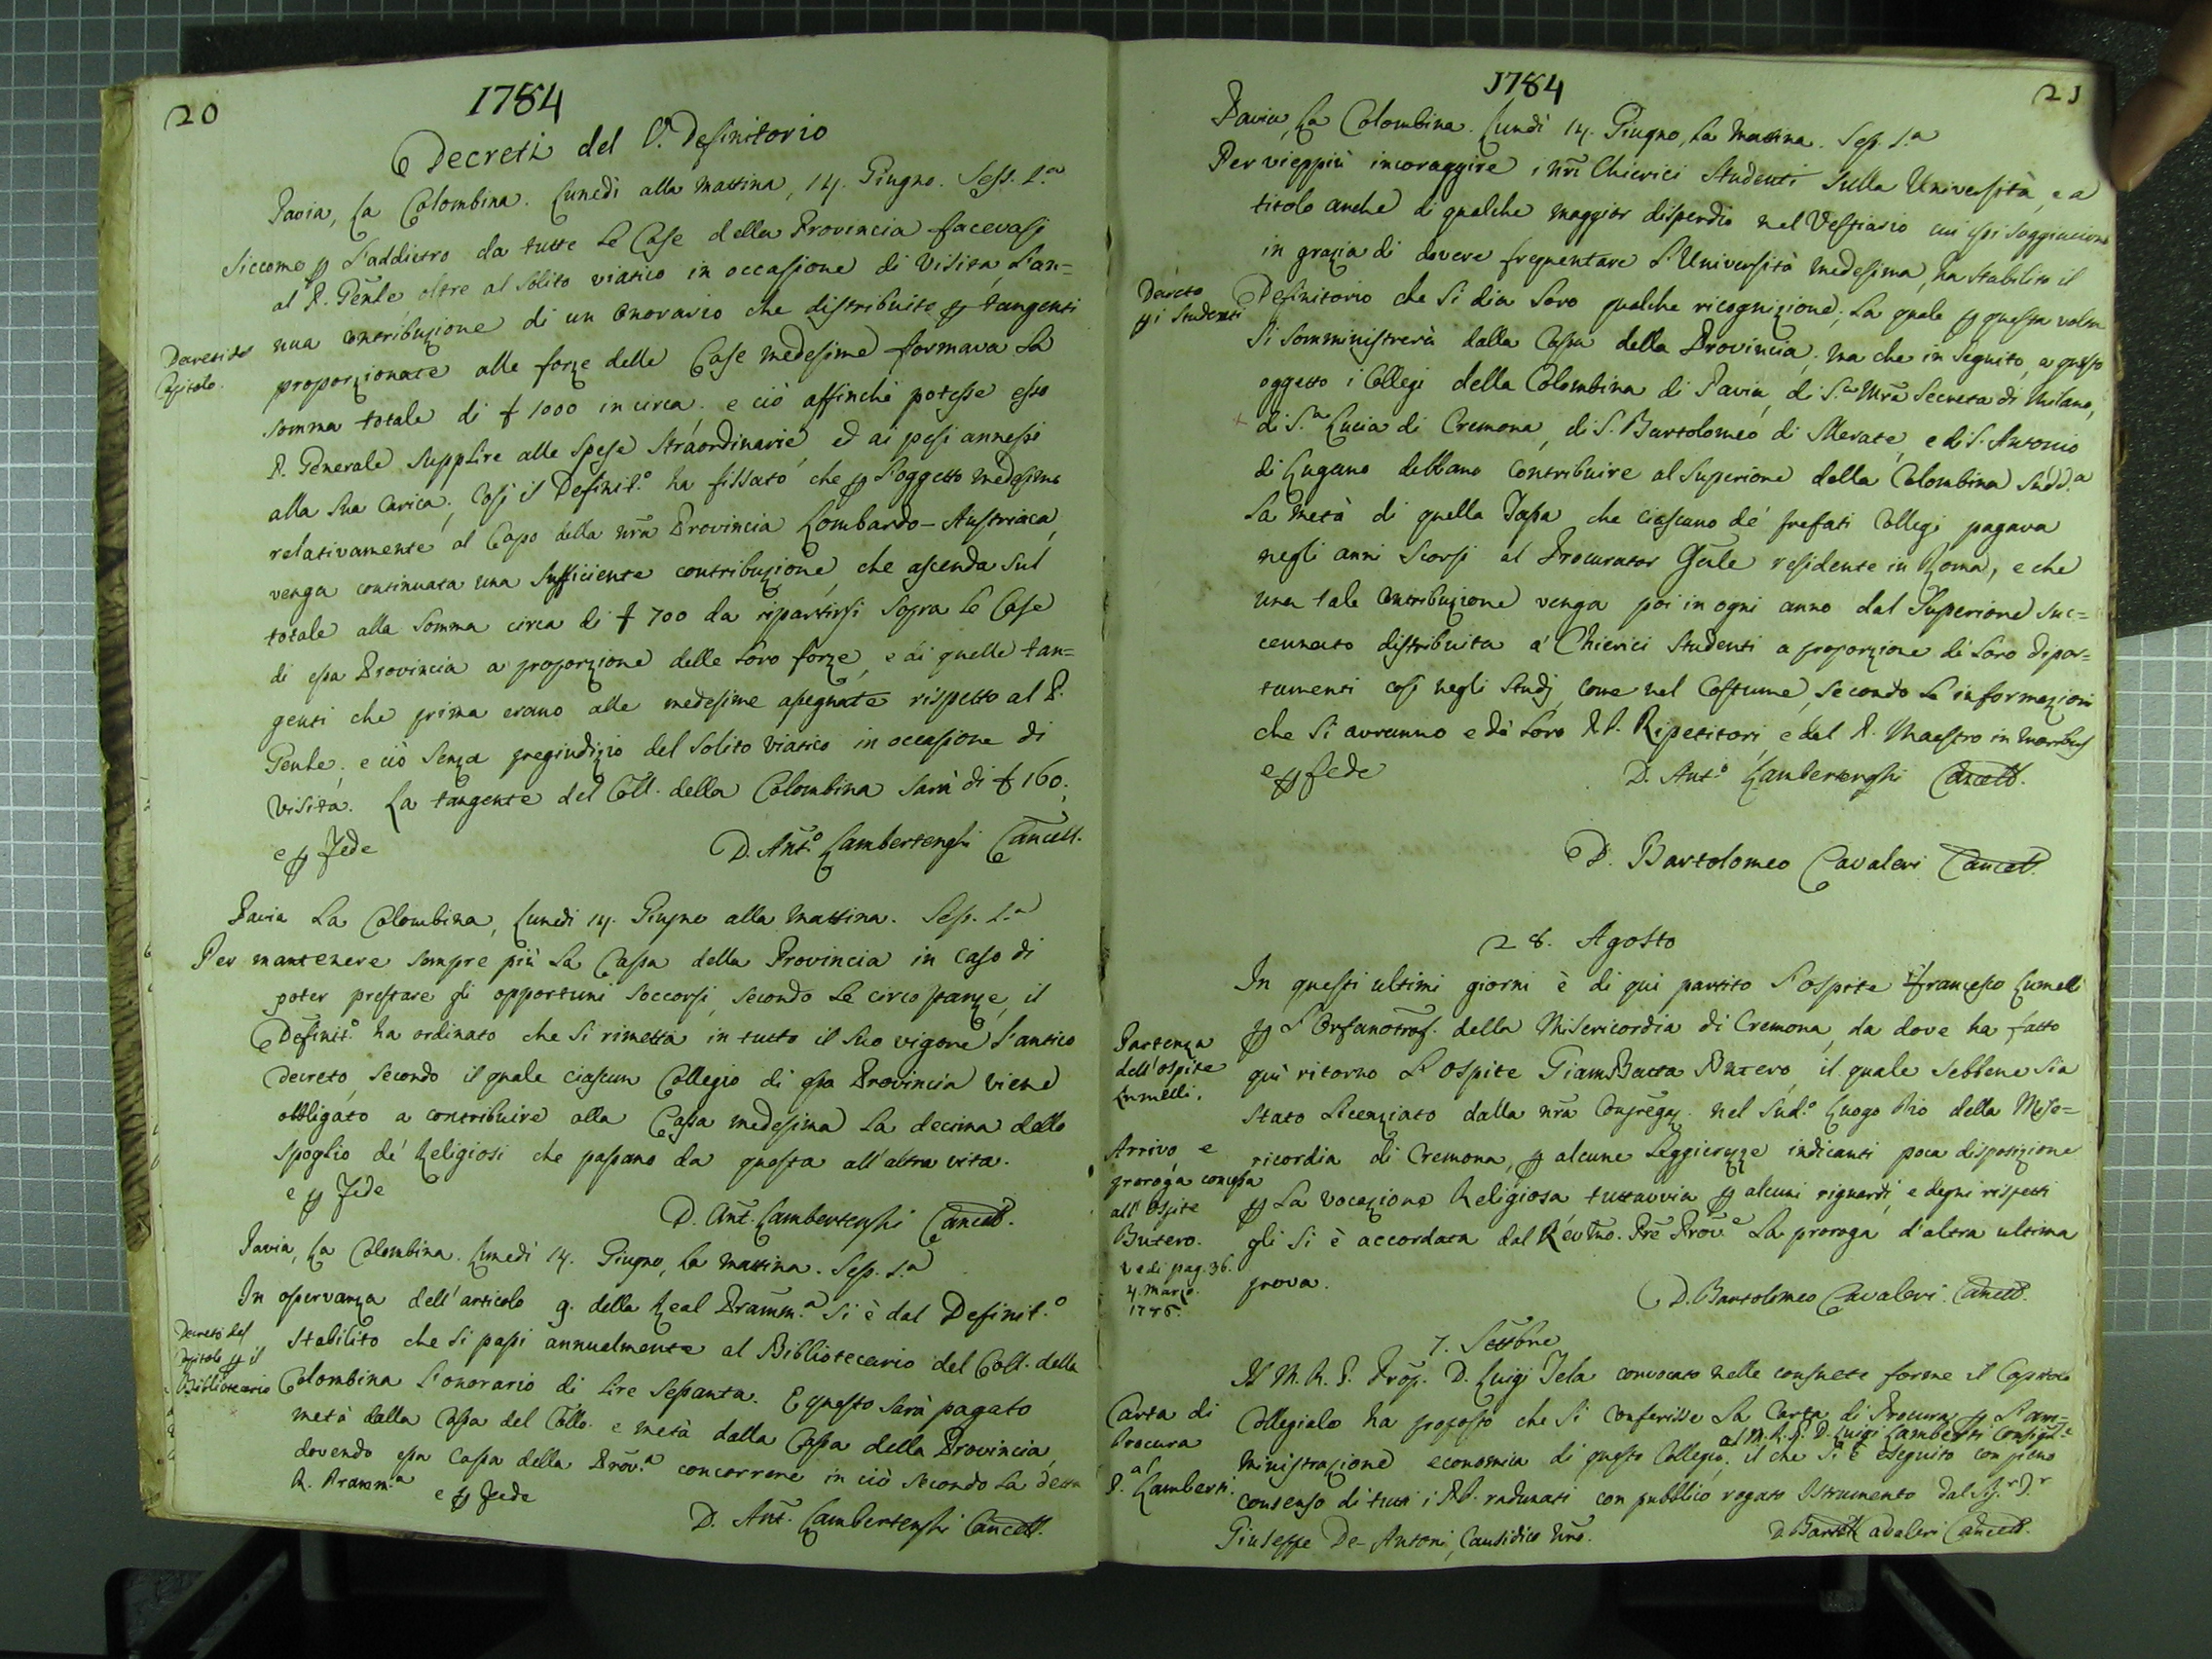 20
1784
Decreti del V. Definitorio
Pavia, La Colombina. Lunedì alla mattina, 14. Giugno. Sess. 1.a
Siccome p L'addietro da tutte le Case della Provincia facevasi
al P. Genle oltre al solito viatico in occasione di Visita, L'an=
nua contribuzione di un onorario che distribuito p tangenti
Decreti del
Capitolo.
proporzionate alle forze delle Case medesime formava la
somma totale di £ 1000 in circa; e ciò affinchè potesse esso
P. Generale supplire alle spese straordinarie, ed ai pesi annessi
alla sua carica; così il Definit.o ha fissato che p l'oggetto medesimo
relativamente al Capo della nra Provincia Lombardo-Austriaca,
venga continuata una sufficiente contribuzione, che ascenda sul
totale alla somma circa di £ 700 da ripartirsi sopra le Case
di essa Provincia a proporzione delle loro forze, e di quelle tan=
genti che prima erano alle medesime assegnate rispetto al P.
Genle; e ciò senza pregiudizio del solito viatico in occasione di
visita. La tangente del Coll. della Colombina sarà di £ 160.
e p fede
D. Ant.o Lambertenghi Cancell.
Pavia La Colombina, Lunedì 14. Giugno alla mattina. Sess. 1.a
Per mantenere sempre più la Cassa della Provincia in caso di
poter prestare gli opportuni soccorsi, secondo le circostanze, il
Definit.o ha ordinato che si rimetta in tutto il suo vigore l'antico
decreto, secondo il quale ciascun Collegio di essa Provincia viene
obbligato a contribuire alla Cassa medesima la decima dello
spoglio de' Religiosi che passano da questa all'altra vita.
e p fede
D. Ant. Lambertenghi Cancell.
Pavia, La Colombina. Lunedì 14. Giugno, la mattina. Sess. 1.a
In osservanza dell'articolo 9. della Real Pramm.a si è dal Definit.o
Decreto del
Capitolo p il
Bibliotecario
stabilito che si passi annualmente al Bibliotecario del Coll. della
Colombina l'onorario di lire sessanta. E questo sarà pagato
metà dalla Cassa del Collo. e metà dalla Cassa della Provincia,
dovendo essa Cassa della Prov.a concorrere in ciò secondo la detta
R. Pramm.a e p fede
D. Ant. Lambertenghi Cancell.
1784
21
Pavia, La Colombina. Lundì 14. Giugno, la mattina. Sess. 1.a
Per vieppiù incoraggire i nri Chierici Studenti sulla Università, e a
titolo anche di qualche maggior dispendio nel Vestiario cui essi soggiaciono
in grazia di dovere frequentare l'Università medesima, ha stabilito il
Decreto
p i Studenti
Definitorio che si dia loro qualche ricognizione; la quale p questa volta
si somministrerà dalla Cassa della Provincia; ma che in seguito, a questo
oggetto i Collegi della Colombina di Pavia, di S.a Mra Secreta di Milano,
di S.a Lucia di Cremona, di S. Bartolomeo di Merate, e di S. Antonio
di Lugano debbano contribuire al Superiore della Colombina sudd.a
la metà di quella Tassa che ciascuno de' prefati Collegi pagava
negli anni scorsi al Procurator Gnle residente in Roma, e che
una tale contribuzione venga poi in ogni anno dal Superiore suc=
cennato distribuita a' Chierici studenti a proporzione di loro dipor=
tamenti così negli studj, come nel costume, secondo le informazioni
che si avranno e da loro PP. Ripetitori, e dal P. Maestro in moribus
e p fede
D. Ant.o Lambertenghi Cancell.
D. Bartolomeo Cavaleri Cancell.
28. Agosto
In questi ultimi giorni è di qui partito l'ospite Francesco Lumelli
Partenza
dell'ospite
Lumelli.
p l'Orfanotrof. della Misericordia di Cremona, da dove ha fatto
quì ritorno l'ospite Giam Batta Butero, il quale sebbene sia
stato licenziato dalla nra Congregaz. nel Sud.o Luogo Pio della Mise=
Arrivo e
proroga concessa
all'ospite
Butero.
vedi pag. 36.
4. Marzo.
ricordia di Cremona, p alcune leggierezze indicanti poca disposizione
p la vocazione Religiosa tuttavvia p alcuni riguardi, e degni rispetti
gli si è accordata dal Revmo. Pre Prov.e la proroga d'altra ultima
prova.
D. Bartolomeo Cavaleri Cancell.
7. Settbre
Il M. R. P. Prop. D. Luigi Tela convocato nelle consuete forme il Capitolo
Carta di
Procura
al
P. Lamberti.
Collegiale ha proposto che si conferisse la Carta di Procura p l'am=
al M. R. P. D. Luigi Lamberti Consigl.e
ministrazione economica di questo Collegio; il che si è eseguito con pieno
consenso di tutti i PP. radunati con pubblico rogato Istrumento dal Sig.r D.r
Giuseppe De-Antoni, Causidico nro.
D. Bartol. Cavaleri Cancell.